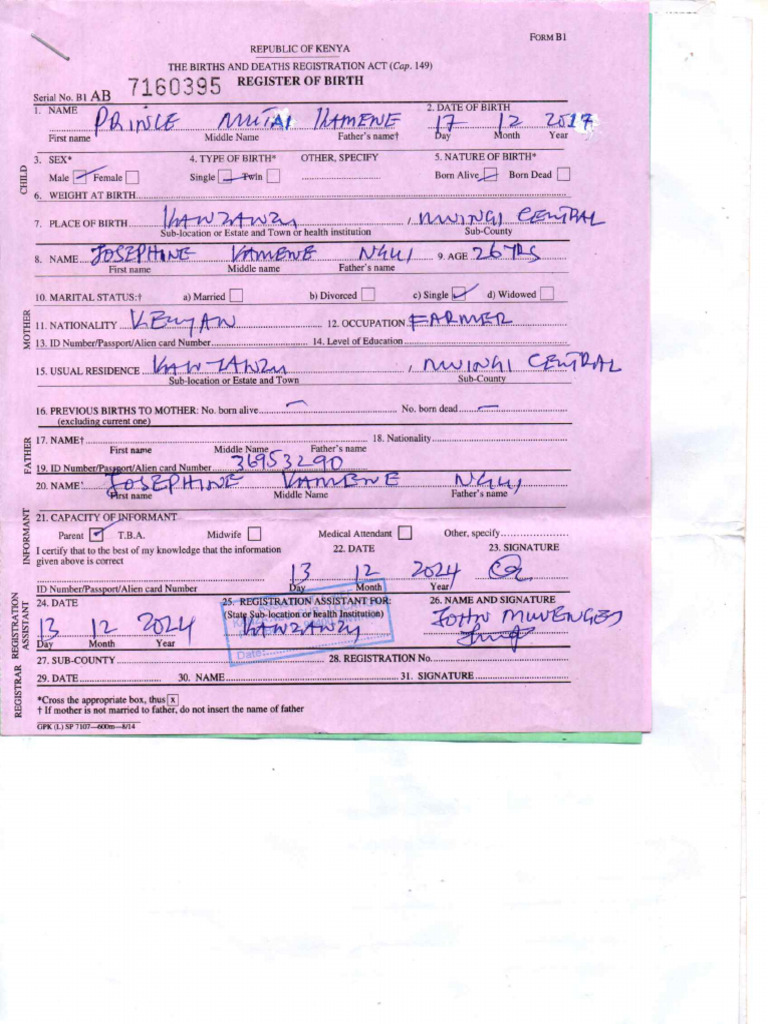 FORM B1
REPUBLIC OF KENYA
THE BIRTHS AND DEATHS REGISTRATION ACT (Cap. 149)
Serial No. B1 AB 7160395 REGISTER OF BIRTH
CHILD
1. NAME PRINCE MUTAI KAMENE 2. DATE OF BIRTH 17 12 2017
First name Middle Name Father's name† Day Month Year
3. SEX* 4. TYPE OF BIRTH* OTHER, SPECIFY 5. NATURE OF BIRTH*
Male Female Single Twin Born Alive Born Dead
6. WEIGHT AT BIRTH
7. PLACE OF BIRTH KANZANZU, MWINGI CENTRAL
Sub-location or Estate and Town or health institution Sub-County
MOTHER
8. NAME JOSEPHINE KAMENE NGUI 9. AGE 26 YRS
First name Middle name Father's name
10. MARITAL STATUS:† a) Married b) Divorced c) Single d) Widowed
11. NATIONALITY KENYAN 12. OCCUPATION FARMER
13. ID Number/Passport/Alien card Number 14. Level of Education
15. USUAL RESIDENCE KANZANZU, MWINGI CENTRAL
Sub-location or Estate and Town Sub-County
16. PREVIOUS BIRTHS TO MOTHER: No. born alive – No. born dead –
(excluding current one)
FATHER
17. NAME† 18. Nationality
First name Middle Name Father's name
19. ID Number/Passport/Alien card Number 36953290
INFORMANT
20. NAME JOSEPHINE KAMENE NGUI
First name Middle Name Father's name
21. CAPACITY OF INFORMANT
Parent T.B.A. Midwife Medical Attendant Other, specify
I certify that to the best of my knowledge that the information 22. DATE 23. SIGNATURE
given above is correct
13 12 2024
ID Number/Passport/Alien card Number Day Month Year
REGISTRATION ASSISTANT
24. DATE 25. REGISTRATION ASSISTANT FOR: 26. NAME AND SIGNATURE
(State Sub-location or health Institution)
13 12 2024 KANZANZU JOHN
Day Month Year Date:
REGISTRAR
27. SUB-COUNTY 28. REGISTRATION No.
29. DATE 30. NAME 31. SIGNATURE
*Cross the appropriate box, thus x
† If mother is not married to father, do not insert the name of father
GPK (L) SP 7107—600m—8/14